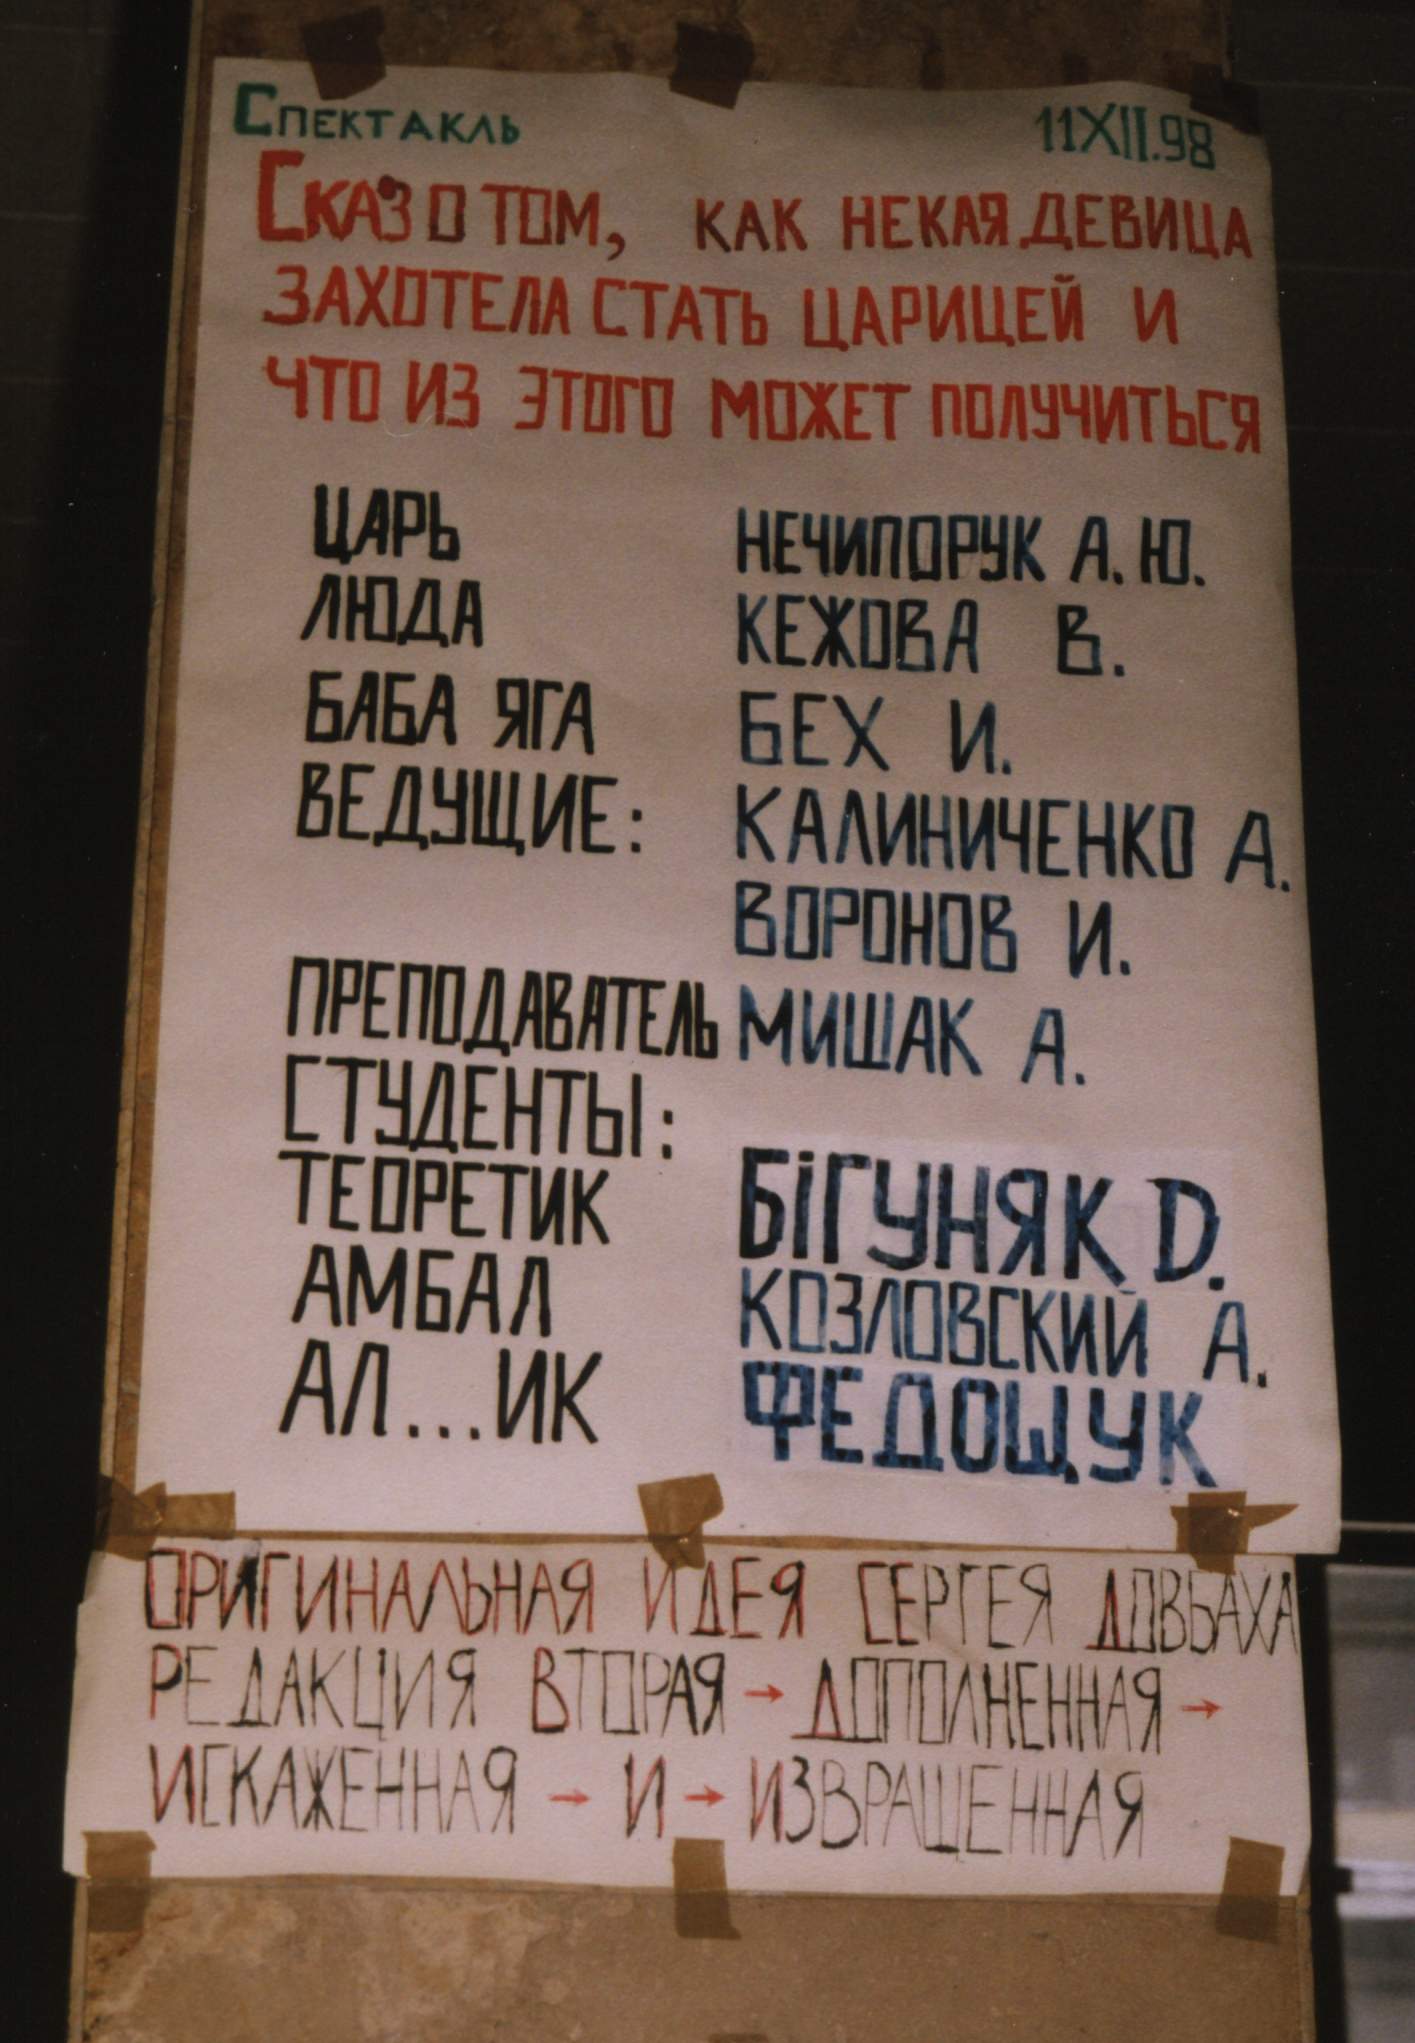 Спектакль 11XII.98
Сказ о том, как некая девица
захотела стать царицей и
что из этого может получиться
ЦАРЬ НЕЧИПОРУК А.Ю.
ЛЮДА КЕЖОВА В.
БАБА ЯГА БЕХ И.
ВЕДУЩИЕ: КАЛИНИЧЕНКО А.
ВОРОНОВ И.
ПРЕПОДАВАТЕЛЬ МИШАК А.
СТУДЕНТЫ:
ТЕОРЕТИК БІГУНЯК D.
АМБАЛ КОЗЛОВСКИЙ А.
АЛ...ИК ФЕДОЩУК
ОРИГИНАЛЬНАЯ ИДЕЯ СЕРГЕЯ ДОВБАХА
РЕДАКЦИЯ ВТОРАЯ → ДОПОЛНЕННАЯ →
ИСКАЖЕННАЯ → И → ИЗВРАЩЕННАЯ